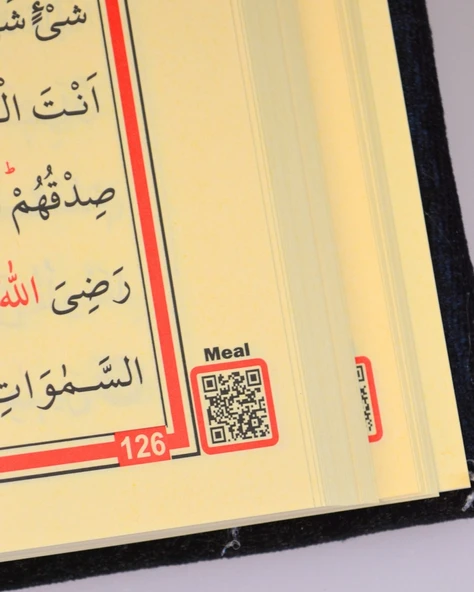 شَيْءٍ
اَنْتَ
صِدْقُهُمْ
رَضِىَ اللّٰهُ
السَّمٰوَاتِ
Meal
126